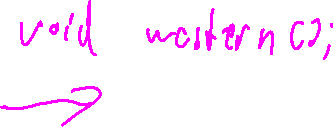 void western();